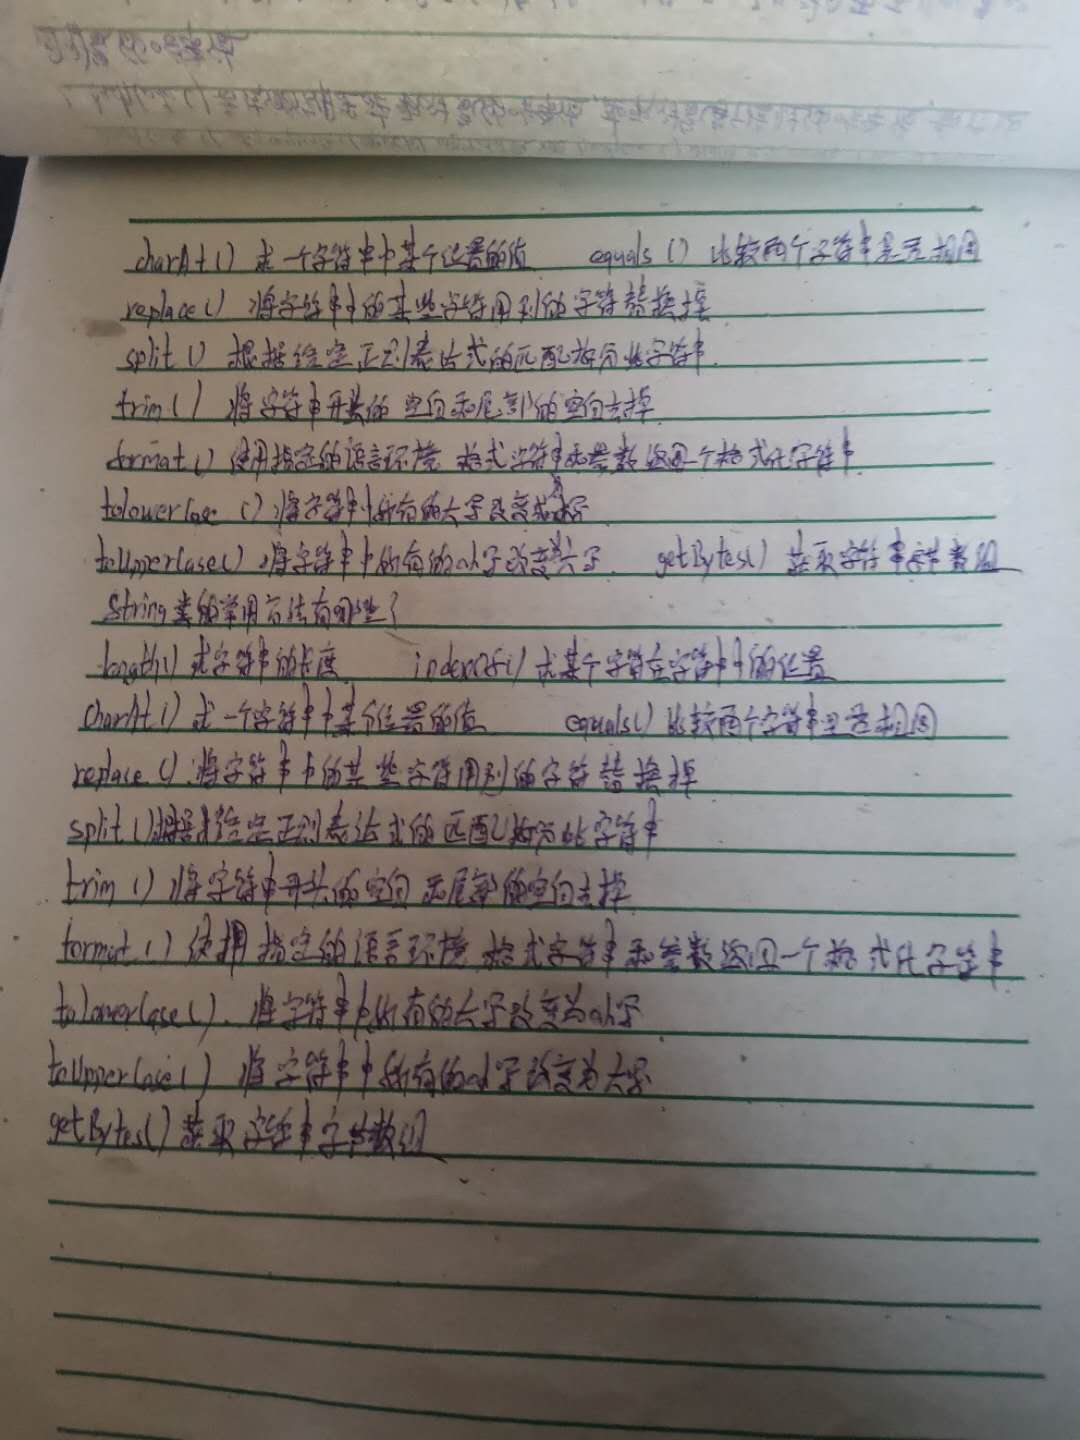 charAt() 求一个字符串中某个位置的值 equals() 比较两个字符串是否相同
replace() 将字符串中的某些字符用别的字符替换掉
split() 根据给定正则表达式的匹配拆分此字符串
trim() 将字符串开头的空白和尾部的空白去掉
format() 使用指定的语言环境 格式字符串和参数返回一个格式化字符串
tolowerCase() 将字符串中所有的大写改变成小写
toUpperCase() 将字符串中所有的小写改变为大写 getBytes() 获取字符串字节数组
String类的常用方法有哪些?
length() 求字符串的长度 indexOf() 求某个字符在字符串中的位置
charAt() 求一个字符串中某个位置的值 equals() 比较两个字符串是否相同
replace() 将字符串中的某些字符用别的字符替换掉
split() 根据给定正则表达式的匹配拆分此字符串
trim() 将字符串开头的空白和尾部的空白去掉
format() 使用指定的语言环境 格式字符串和参数返回一个格式化字符串
tolowerCase() 将字符串中所有的大写改变为小写
toUpperCase() 将字符串中所有的小写改变为大写
getBytes() 获取字符串字节数组